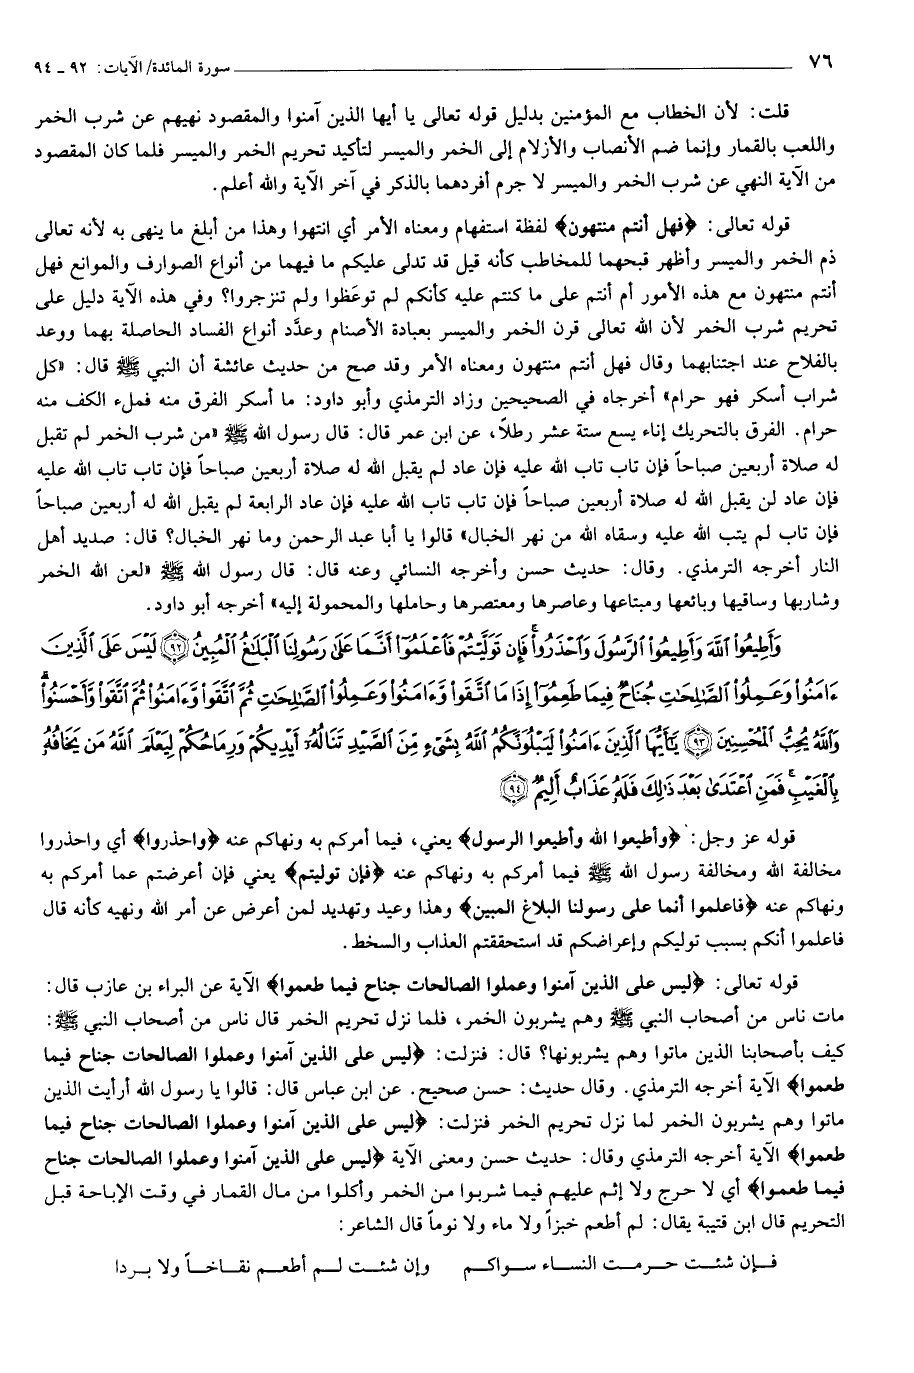 ٧٦ سورة المائدة/ الآيات: ٩٢ - ٩٤
قلت: لأن الخطاب مع المؤمنين بدليل قوله تعالى يا أيها الذين آمنوا والمقصود نهيهم عن شرب الخمر
واللعب بالقمار وإنما ضم الأنصاب والأزلام إلى الخمر والميسر لتأكيد تحريم الخمر والميسر فلما كان المقصود
من الآية النهي عن شرب الخمر والميسر لا جرم أفردهما بالذكر في آخر الآية والله أعلم.
قوله تعالى: ﴿فهل أنتم منتهون﴾ لفظة استفهام ومعناه الأمر أي انتهوا وهذا من أبلغ ما ينهى به لأنه تعالى
ذم الخمر والميسر وأظهر قبحهما للمخاطب كأنه قيل قد تدلى عليكم ما فيهما من أنواع الصوارف والموانع فهل
أنتم منتهون مع هذه الأمور أم أنتم على ما كنتم عليه كأنكم لم توعَظوا ولم تنزجروا؟ وفي هذه الآية دليل على
تحريم شرب الخمر لأن الله تعالى قرن الخمر والميسر بعبادة الأصنام وعدَّد أنواع الفساد الحاصلة بهما ووعد
بالفلاح عند اجتنابهما وقال فهل أنتم منتهون ومعناه الأمر وقد صح من حديث عائشة أن النبي ﷺ قال: «كل
شراب أسكر فهو حرام» أخرجاه في الصحيحين وزاد الترمذي وأبو داود: ما أسكر الفرق منه فملء الكف منه
حرام. الفرق بالتحريك إناء يسع ستة عشر رطلاً، عن ابن عمر قال: قال رسول الله ﷺ «من شرب الخمر لم تقبل
له صلاة أربعين صباحاً فإن تاب تاب الله عليه فإن عاد لم يقبل الله له صلاة أربعين صباحاً فإن تاب تاب الله عليه
فإن عاد لن يقبل الله له صلاة أربعين صباحاً فإن تاب تاب الله عليه فإن عاد الرابعة لم يقبل الله له أربعين صباحاً
فإن تاب لم يتب الله عليه وسقاه الله من نهر الخبال» قالوا يا أبا عبد الرحمن وما نهر الخبال؟ قال: صديد أهل
النار أخرجه الترمذي. وقال: حديث حسن وأخرجه النسائي وعنه قال: قال رسول الله ﷺ «لعن الله الخمر
وشاربها وساقيها وبائعها ومبتاعها وعاصرها ومعتصرها وحاملها والمحمولة إليه» أخرجه أبو داود.
وَأَطِيعُوا۟ ٱللَّهَ وَأَطِيعُوا۟ ٱلرَّسُولَ وَٱحْذَرُوا۟ ۚ فَإِن تَوَلَّيْتُمْ فَٱعْلَمُوٓا۟ أَنَّمَا عَلَىٰ رَسُولِنَا ٱلْبَلَٰغُ ٱلْمُبِينُ ﴿٩٢﴾ لَيْسَ عَلَى ٱلَّذِينَ
ءَامَنُوا۟ وَعَمِلُوا۟ ٱلصَّٰلِحَٰتِ جُنَاحٌ فِيمَا طَعِمُوٓا۟ إِذَا مَا ٱتَّقَوا۟ وَّءَامَنُوا۟ وَعَمِلُوا۟ ٱلصَّٰلِحَٰتِ ثُمَّ ٱتَّقَوا۟ وَّءَامَنُوا۟ ثُمَّ ٱتَّقَوا۟ وَّأَحْسَنُوا۟ ۗ
وَٱللَّهُ يُحِبُّ ٱلْمُحْسِنِينَ ﴿٩٣﴾ يَٰٓأَيُّهَا ٱلَّذِينَ ءَامَنُوا۟ لَيَبْلُوَنَّكُمُ ٱللَّهُ بِشَىْءٍ مِّنَ ٱلصَّيْدِ تَنَالُهُۥٓ أَيْدِيكُمْ وَرِمَاحُكُمْ لِيَعْلَمَ ٱللَّهُ مَن يَخَافُهُۥ
بِٱلْغَيْبِ ۚ فَمَنِ ٱعْتَدَىٰ بَعْدَ ذَٰلِكَ فَلَهُۥ عَذَابٌ أَلِيمٌ ﴿٩٤﴾
قوله عز وجل: ﴿وأطيعوا الله وأطيعوا الرسول﴾ يعني، فيما أمركم به ونهاكم عنه ﴿واحذروا﴾ أي واحذروا
مخالفة الله ومخالفة رسول الله ﷺ فيما أمركم به ونهاكم عنه ﴿فإن توليتم﴾ يعني فإن أعرضتم عما أمركم به
ونهاكم عنه ﴿فاعلموا أنما على رسولنا البلاغ المبين﴾ وهذا وعيد وتهديد لمن أعرض عن أمر الله ونهيه كأنه قال
فاعلموا أنكم بسبب توليكم وإعراضكم قد استحققتم العذاب والسخط.
قوله تعالى: ﴿ليس على الذين آمنوا وعملوا الصالحات جناح فيما طعموا﴾ الآية عن البراء بن عازب قال:
مات ناس من أصحاب النبي ﷺ وهم يشربون الخمر، فلما نزل تحريم الخمر قال ناس من أصحاب النبي ﷺ:
كيف بأصحابنا الذين ماتوا وهم يشربونها؟ قال: فنزلت: ﴿ليس على الذين آمنوا وعملوا الصالحات جناح فيما
طعموا﴾ الآية أخرجه الترمذي. وقال حديث: حسن صحيح. عن ابن عباس قال: قالوا يا رسول الله أرأيت الذين
ماتوا وهم يشربون الخمر لما نزل تحريم الخمر فنزلت: ﴿ليس على الذين آمنوا وعملوا الصالحات جناح فيما
طعموا﴾ الآية أخرجه الترمذي وقال: حديث حسن ومعنى الآية ﴿ليس على الذين آمنوا وعملوا الصالحات جناح
فيما طعموا﴾ أي لا حرج ولا إثم عليهم فيما شربوا من الخمر وأكلوا من مال القمار في وقت الإباحة قبل
التحريم قال ابن قتيبة يقال: لم أطعم خبزاً ولا ماء ولا نوماً قال الشاعر:
فإن شئت حرمت النساء سواكم وإن شئت لم أطعم نقاخاً ولا بردا